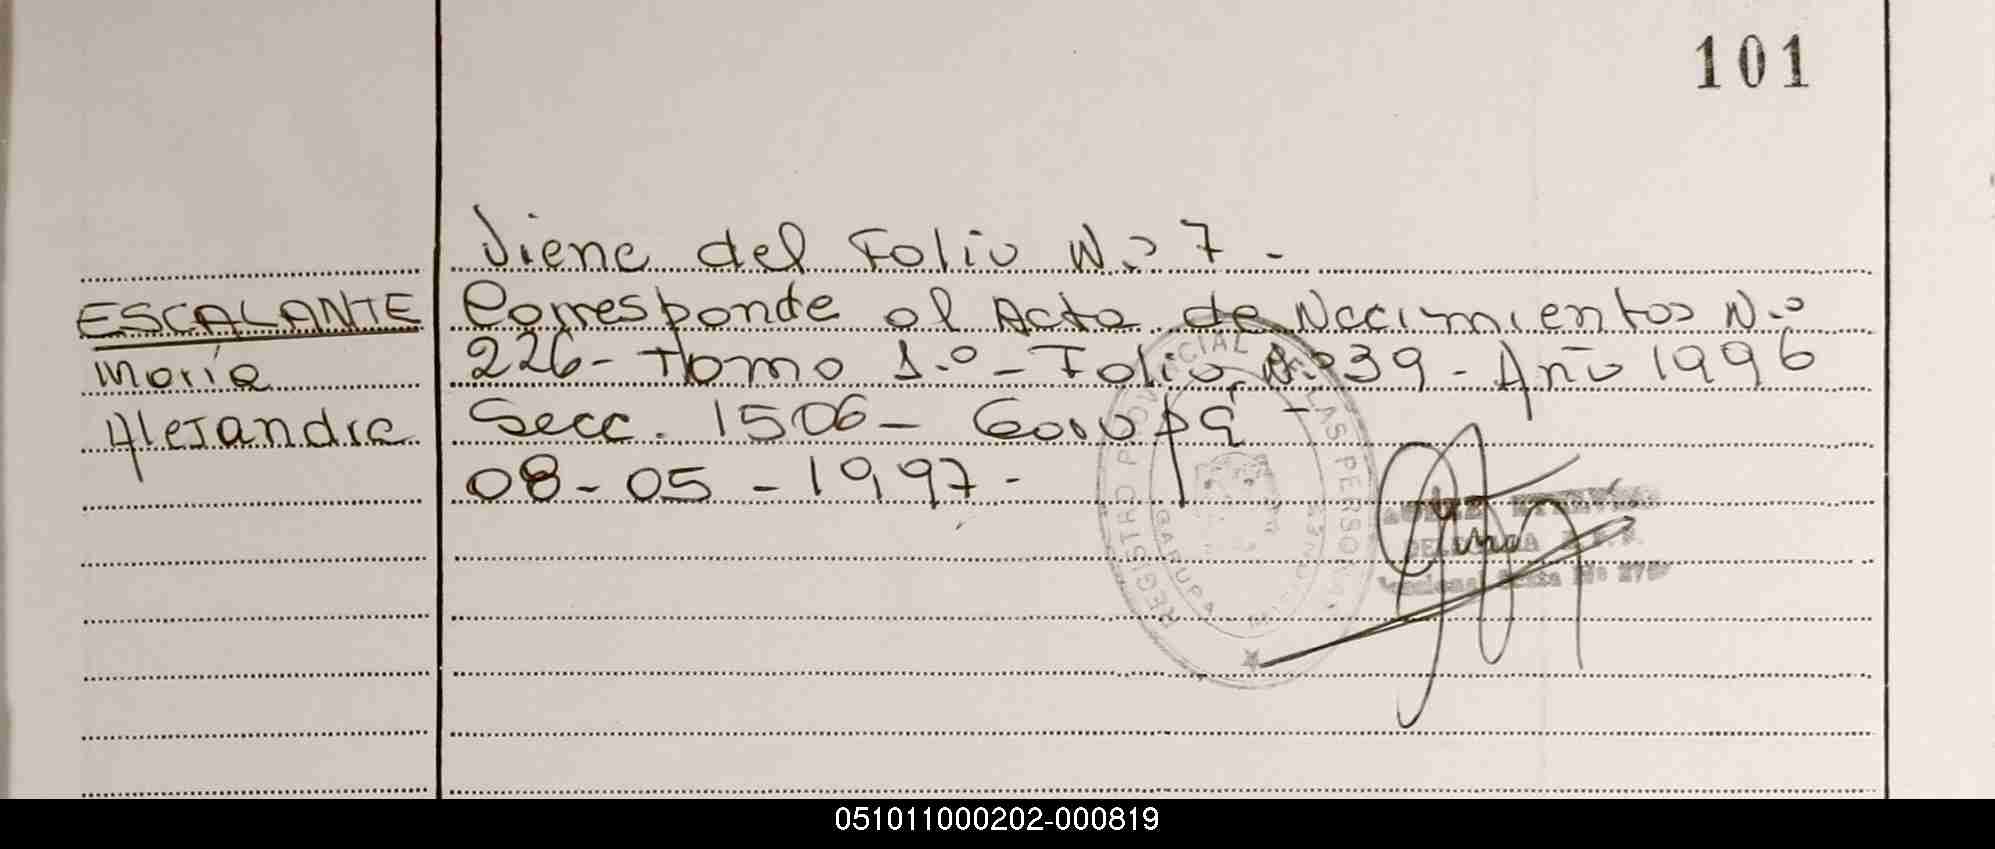 101
Viene del Folio N.º 7 -
ESCALANTE Corresponde al Acta de Nacimientos N.º
María 226 - Tomo 1.º - Folio N.º 39 - Año 1996
Alejandra Secc. 1506 - Garupá -
08-05-1997 -
REGISTRO PROVINCIAL DE LAS PERSONAS
GARUPA
051011000202-000819